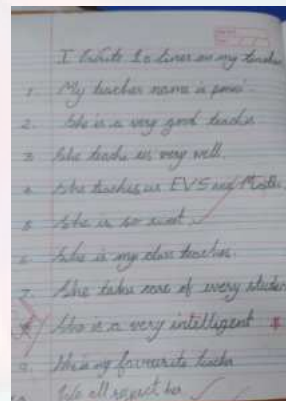 I Write 10 lines on my teacher
1. My teacher name is
2. She is a very good teacher
3. She teache us very well.
4. She teaches us EVS and Maths.
5. She is so sweet.
6. She is my class teacher.
7. She take care of every student
8. She is a very intelligent
9. She is my favourite teacher
10. We all respect her